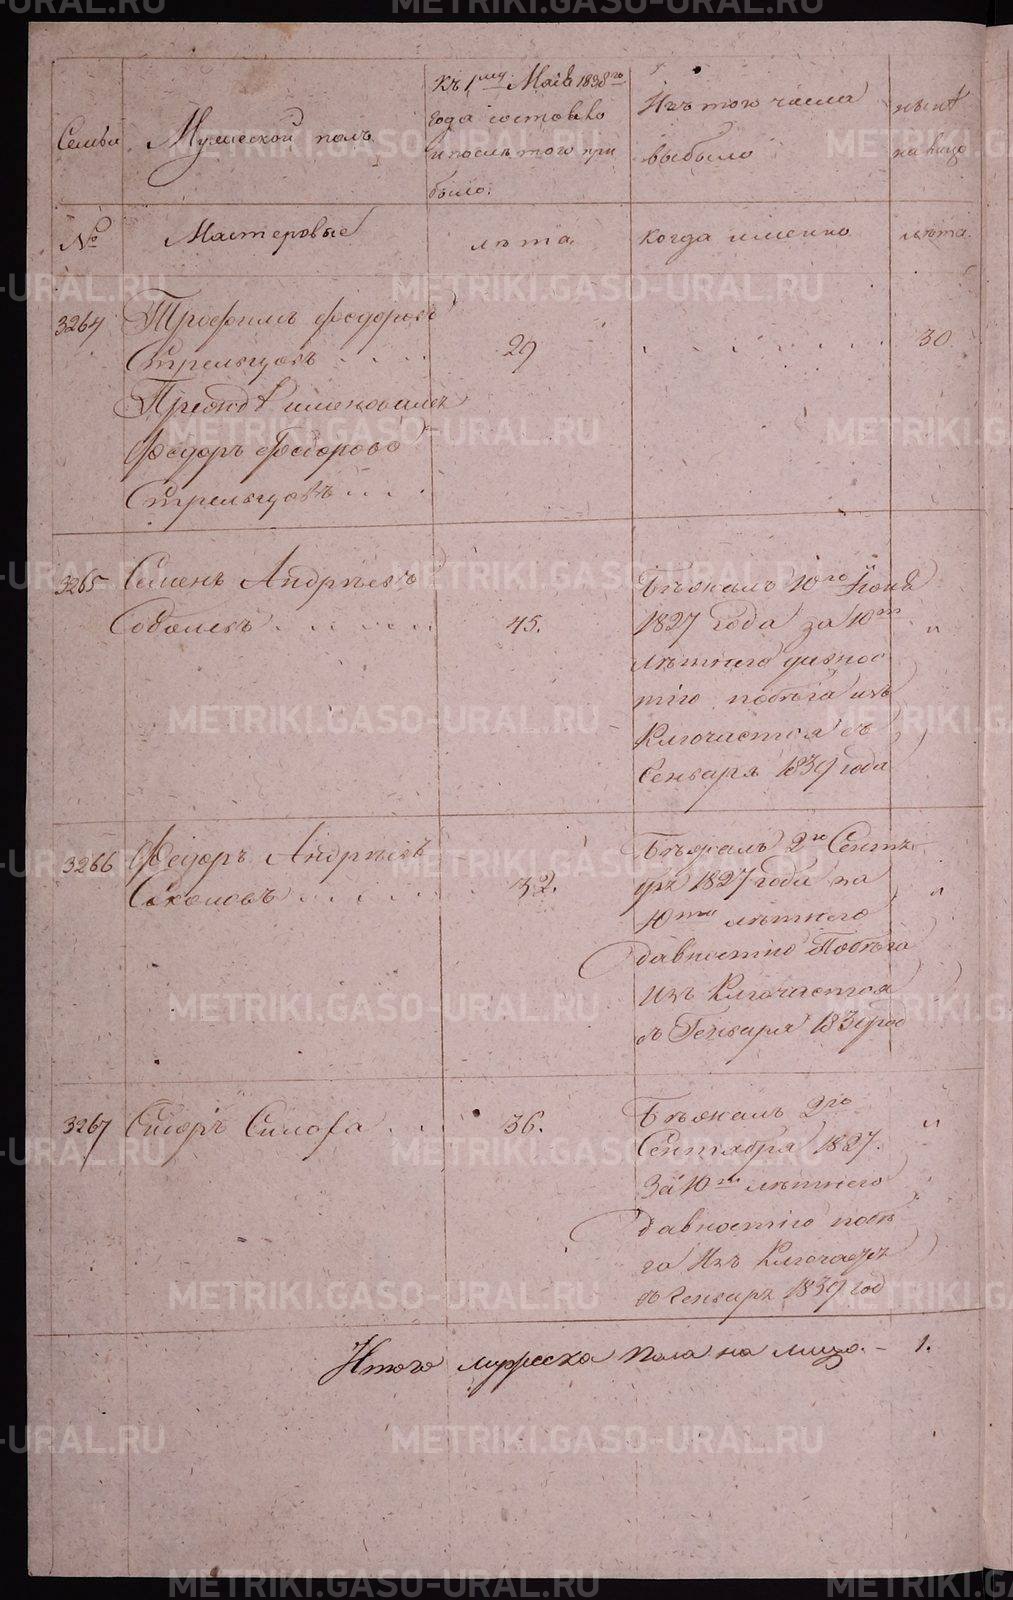 Семьи
Мужеской полъ
къ 1му Маiя 1838го
года состояло
и после того при
было.
Изъ того числа
выбыло
ныне
на лицо
№
Мастеровые
лѣта.
когда именно
лѣта.
3264
Трофимъ Федоровъ
Стрельцовъ . . . .
29
30
Преждѣ именовался
Федоръ Федоровъ
Стрельцовъ . . .
3265
Семенъ Андреевъ
Соболевъ . . . . . .
45.
Бѣжалъ 10го Iюня
1827 года за 10ти
лѣтнею давнос
тiю побѣга изъ
Ключается въ
Генваря 1839 года
"
3266
Федоръ Андреевъ
Соколовъ . . . . .
32.
Бѣжалъ 2го Сентя
бря 1827 года за
10ти лѣтнею
давностiю Побѣга
Изъ Ключается
въ Генваря 1839 год
"
3267
Сидоръ Сидора . .
36.
Бѣжалъ 2го
Сентября 1827.
За 10ти лѣтнею
давностiю побѣ
га Изъ Ключаетъ
въ Генваря 1839 год
"
Итого мужеска пола на лицо. – 1.
METRIKI.GASO-URAL.RU